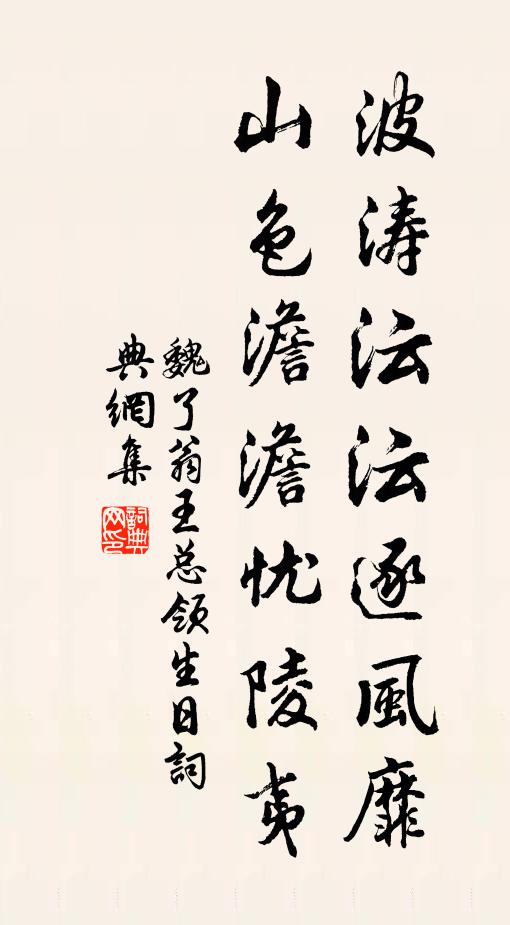 波涛沄沄逐風靡
山色澹澹忧陵夷
魏了翁王总领生日詞
典網集
詞典网印